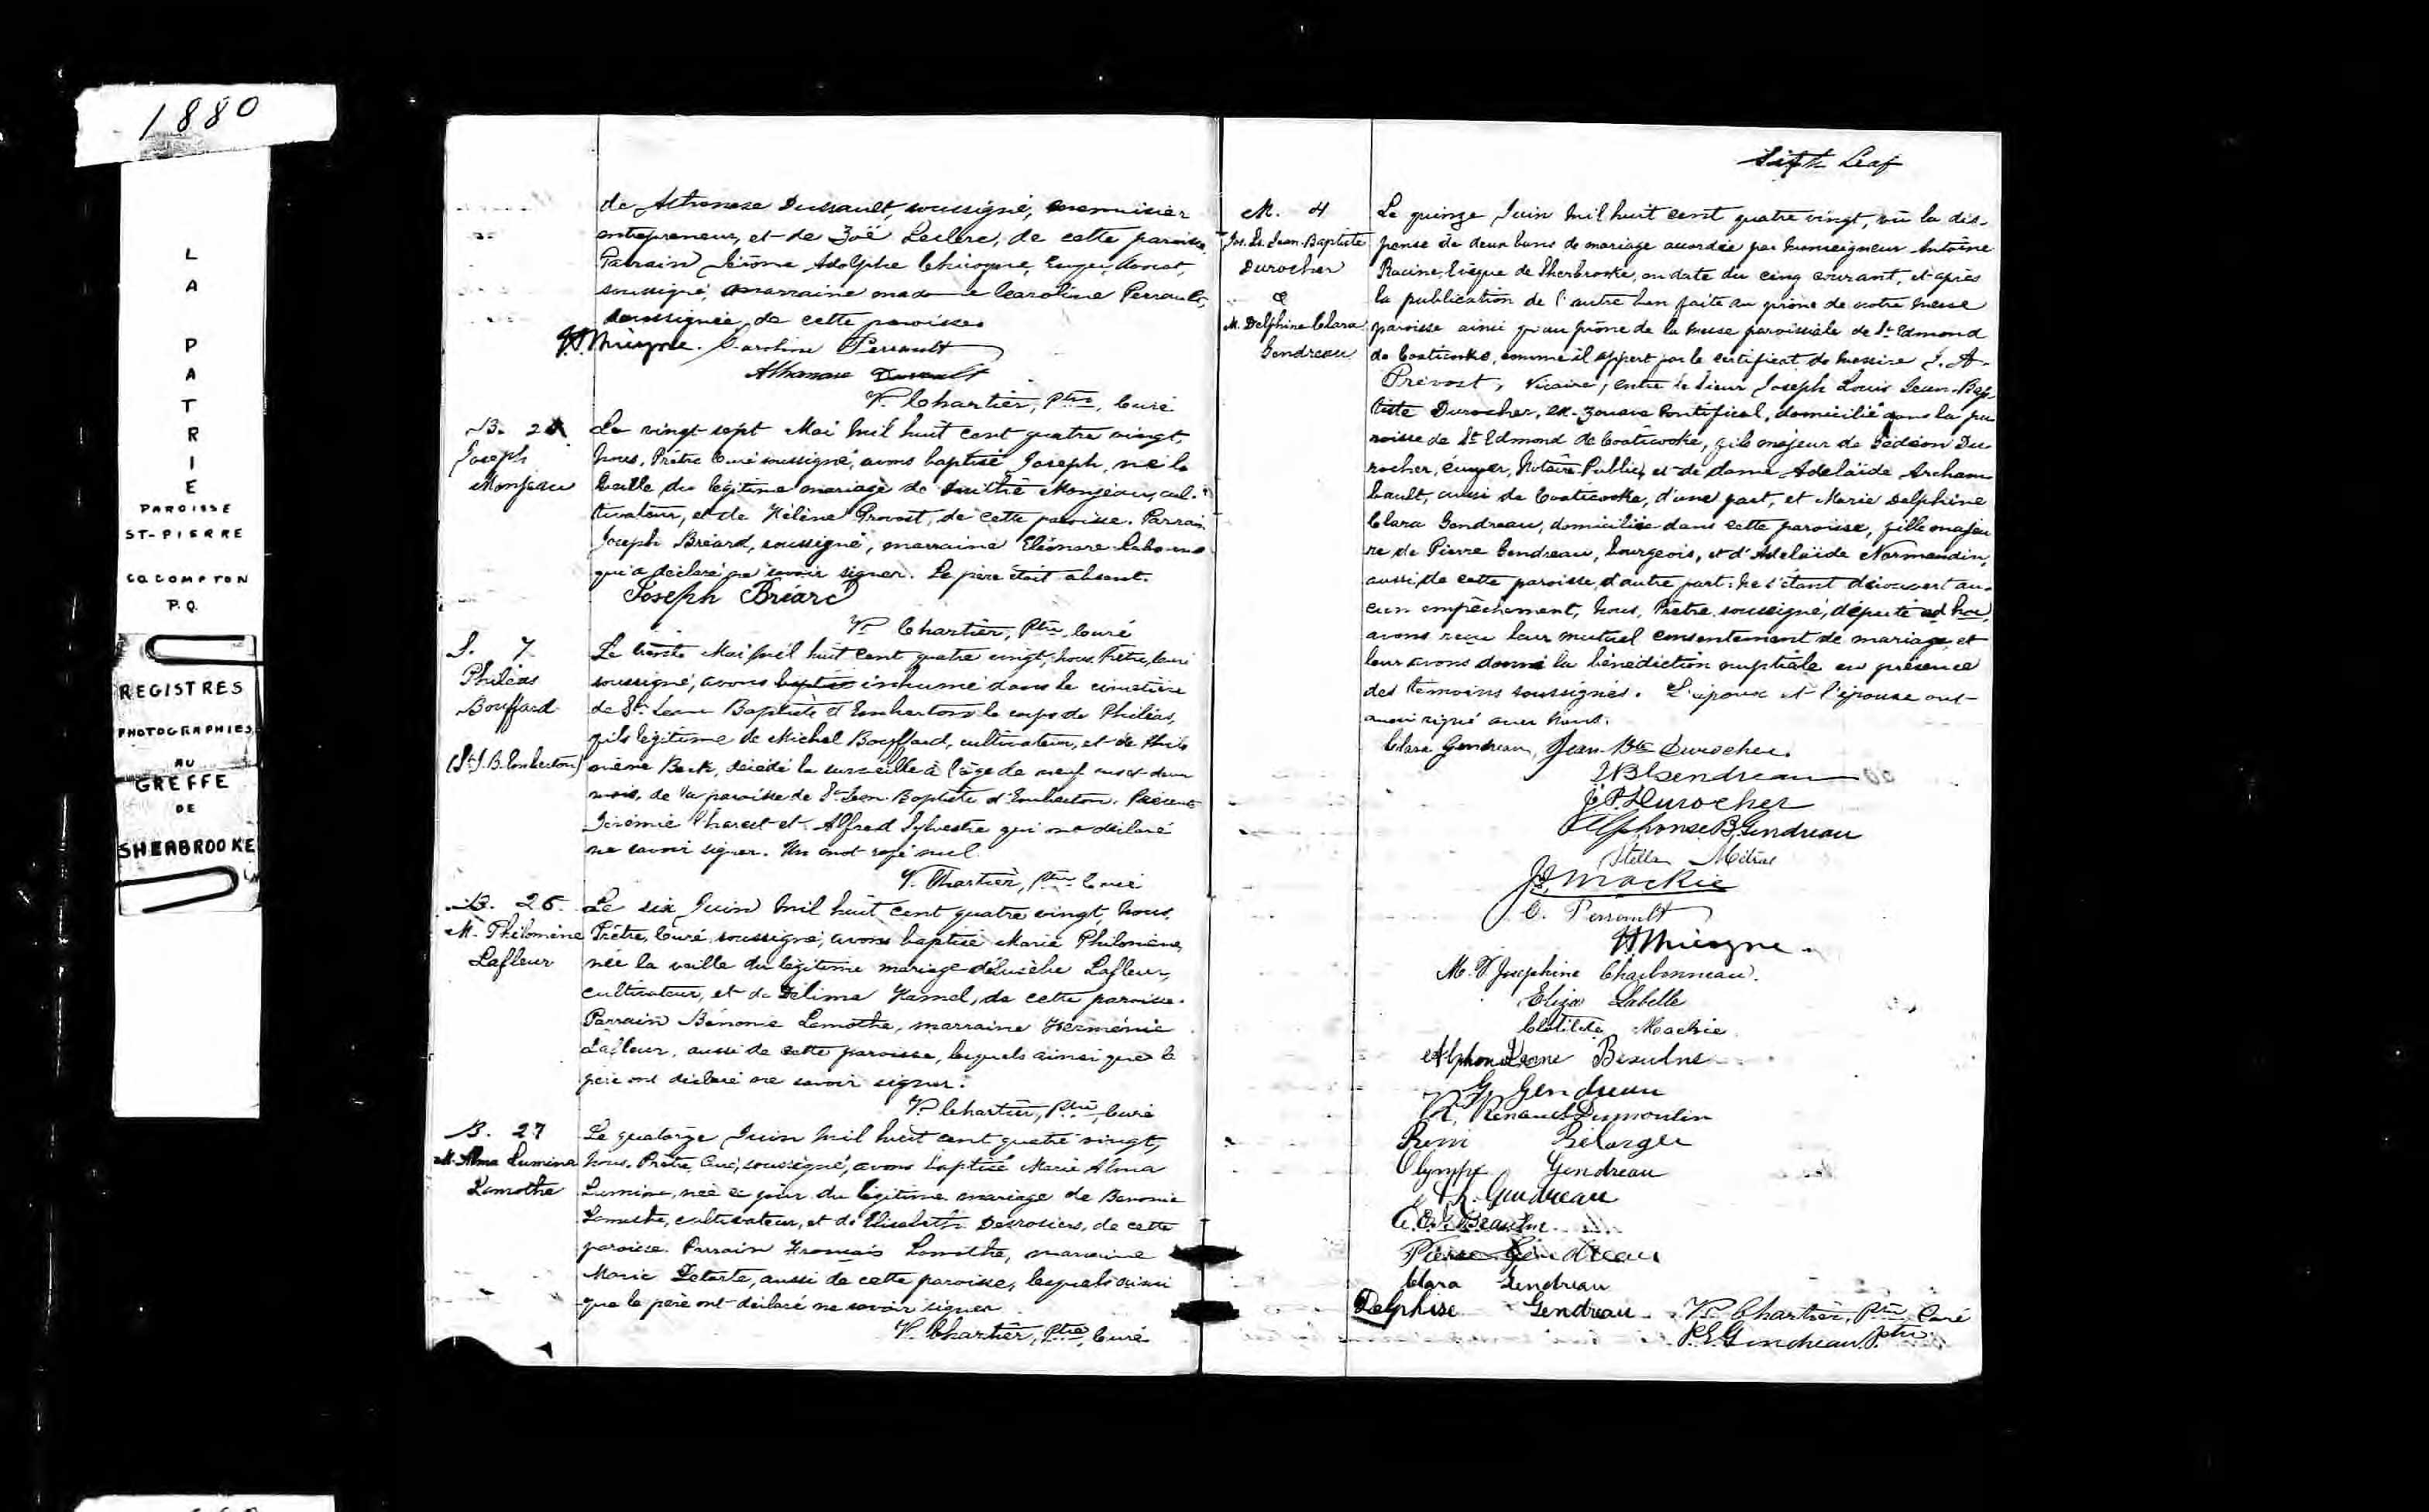 1880
LA PATRIE
PAROISSE
ST-PIERRE
CO. COMPTON
P.Q.
REGISTRES
PHOTOGRAPHIES
AU
GREFFE
DE
SHERBROOKE
de Dussault, soussigné, menuisier
entrepreneur, et de Zoé Leclerc, de cette paroisse.
Parrain Jérôme Adolphe Chicoyne, Ecuyer, Avocat,
soussigné, marraine madame Caroline Perrault,
soussignée, de cette paroisse.
Caroline Perrault
Athanase Dussault
V. Chartier, Ptre, Curé
B. 2
Joseph
Monjeau
Le vingt-sept Mai mil huit cent quatre vingt,
nous, Prêtre Curé soussigné, avons baptisé Joseph, né la
veille du légitime mariage de Monjeau, cul-
tivateur, et de Hélène Provost, de cette paroisse. Parrain
Joseph Bréard, soussigné, marraine Eléonore
qui a déclaré ne savoir signer. Le père était absent.
Joseph Briard
V. Chartier, Ptre, Curé
S. 7
Philéas
Bouffard
(St J. B. Emberton)
Le trente Mai mil huit cent quatre vingt, nous, Prêtre, Curé
soussigné, avons baptisé inhumé dans le cimetière
de St Jean Baptiste d'Emberton le corps de Philéas,
fils légitime de Michel Bouffard, cultivateur, et de Philo
mène Beck, décédé la surveille à l'âge de neuf ans et deux
mois, de la paroisse de St Jean-Baptiste d'Emberton. Présents
Jérémie et Alfred Sylvestre qui ont déclaré
ne savoir signer. Un mot rayé nul.
V. Chartier, Ptre Curé
B. 26
M. Philomène
Lafleur
Le six Juin mil huit cent quatre vingt, nous,
Prêtre, Curé, soussigné, avons baptisé Marie Philomène,
née la veille du légitime mariage d'Eusèbe Lafleur,
cultivateur, et de Délima Hamel, de cette paroisse.
Parrain Bénonie Lamothe, marraine Herménie
Lafleur, aussi de cette paroisse, lesquels ainsi que le
père ont déclaré ne savoir signer.
V. Chartier, Ptre, Curé
B. 27
M. Alma Lumina
Lamothe
Le quatorze Juin mil huit cent quatre vingt,
nous, Prêtre, Curé, soussigné, avons baptisé Marie Alma
Lumina, née ce jour du légitime mariage de Benonie
Lamothe, cultivateur, et d'Elisabeth Desrosiers, de cette
paroisse. Parrain François Lamothe, marraine
Marie Letarte, aussi de cette paroisse, lesquels ainsi
que le père ont déclaré ne savoir signer.
V. Chartier, Ptre, Curé
Leaf
M. 4
Jos. Ls. Jean-Baptiste
Durocher
&
M. Delphine Clara
Gendreau
Le quinze Juin mil huit cent quatre vingt, vu la dis-
pense de deux bans de mariage accordée par Monseigneur Antoine
Racine, Evêque de Sherbrooke, en date du cinq courant, et après
la publication de l'autre ban faite au prône de notre messe
paroisse ainsi qu'au prône de la messe paroissiale de St Edmond
de Coaticooke, comme il appert par le certificat de Messire J. A.
Prévost, Vicaire, entre le Sieur Joseph Louis Jean-Bap-
tiste Durocher, ex-zouave Pontifical, domicilié dans la pa
roisse de St Edmond de Coaticooke, fils majeur de Gédéon Du-
rocher, écuyer, Notaire Public, et de dame Adelaïde Archam-
bault, aussi de Coaticooke, d'une part, et Marie Delphine
Clara Gendreau, domiciliée dans cette paroisse, fille majeu
re de Pierre Gendreau, bourgeois, et d'Adelaïde Normandin,
aussi de cette paroisse, d'autre part: ne s'étant découvert au-
cun empêchement, nous, Prêtre soussigné, député ad hoc,
avons reçu leur mutuel consentement de mariage et
leur avons donné la bénédiction nuptiale en présence
des témoins soussignés. L'époux et l'épouse ont
aussi signé avec nous.
Clara Gendreau, Jean-Bte Durocher.
Gendreau
J. P. Durocher
Alphonse B. Gendreau
Stella
Mackie
C. Perrault
M. V. Josephine Charbonneau.
Eliza Labelle
Clotilde Mackie
G. Gendreau
Renaud Dumoulin
Remi Bélanger
Olympe Gendreau
Gendreau
Pierre Gendreau
Clara Gendreau
Delphise Gendreau
V. Chartier, Ptre, Curé
P. E. Gendreau, Ptre.